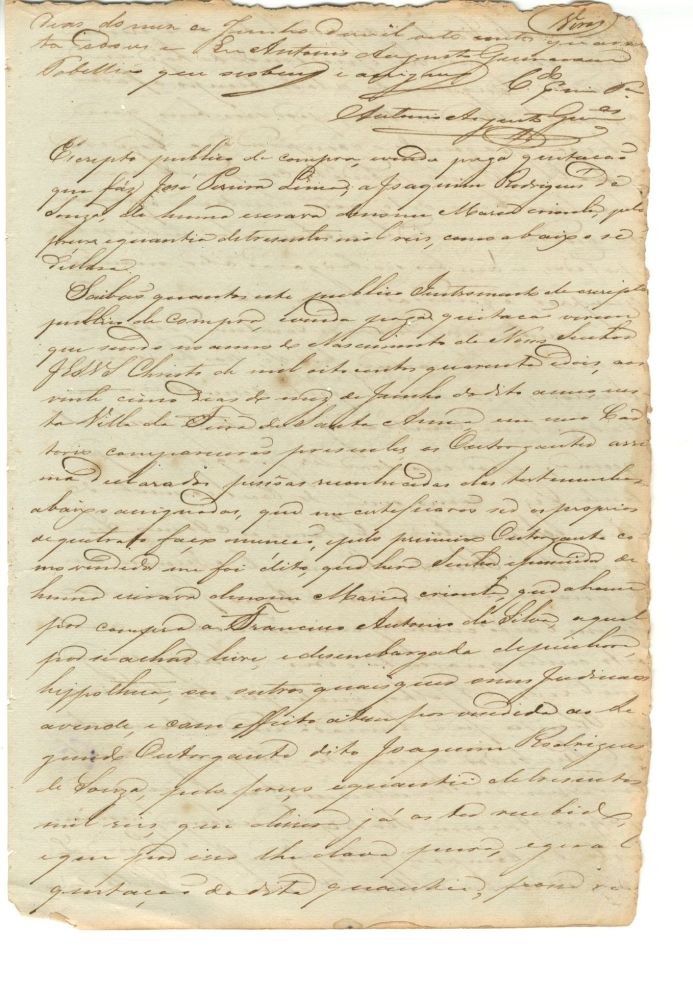 dias do mez de Junho de mil oito centos quaren
ta e dous. Eu Antonio Augusto Guimaraens
Tabellião que escrevy e asigney
Antonio Augusto Gui.es
Escripto publico de compra, venda paga quitação
que faz José Pereira Lima, a Joaquim Rodrigues de
Souza de huma escrava de nome Maria crioula, pelo
preço e quantia de tresentos mil reis, como abaixo se
declara.
Saibão quantos este publico Instromento de escripto
publico de compra, venda paga quitação virem
que sendo no anno do Nascimento de Nosso Senhor
JESUS Christo de mil oito centos quarenta e dois, aos
vinte cinco dias do mez de Junho do dito anno, nes
ta Villa da Feira de Santa Anna em meo Car
torio comparecerão presentes os Outorgantes assi
ma declarados pessoas reconhecidas das testemunhas
abaixo asignadas, que me certeficarão ser os proprios
de que trato faço menção, e pelo primeiro Outorgante co
mo vendedor me foi dito, que hera Senhor e possuidor de
huma escrava de nome Maria crioula, que a houve
por compra a Francisco Antonio da Silva, a qual
por se achar livre, e desembargada de penhora,
hypotheca, ou outros quaisquer onus Judiciaes
a vende, e com effeito a tem por vendida ao Se
gundo Outorgante dito Joaquim Rodrigues
de Souza, pelo preço e quantia de tresentos
mil reis, que disse já os ter recebido,
e que por isso lhe dava pura, e geral
quitação da dita quantia,